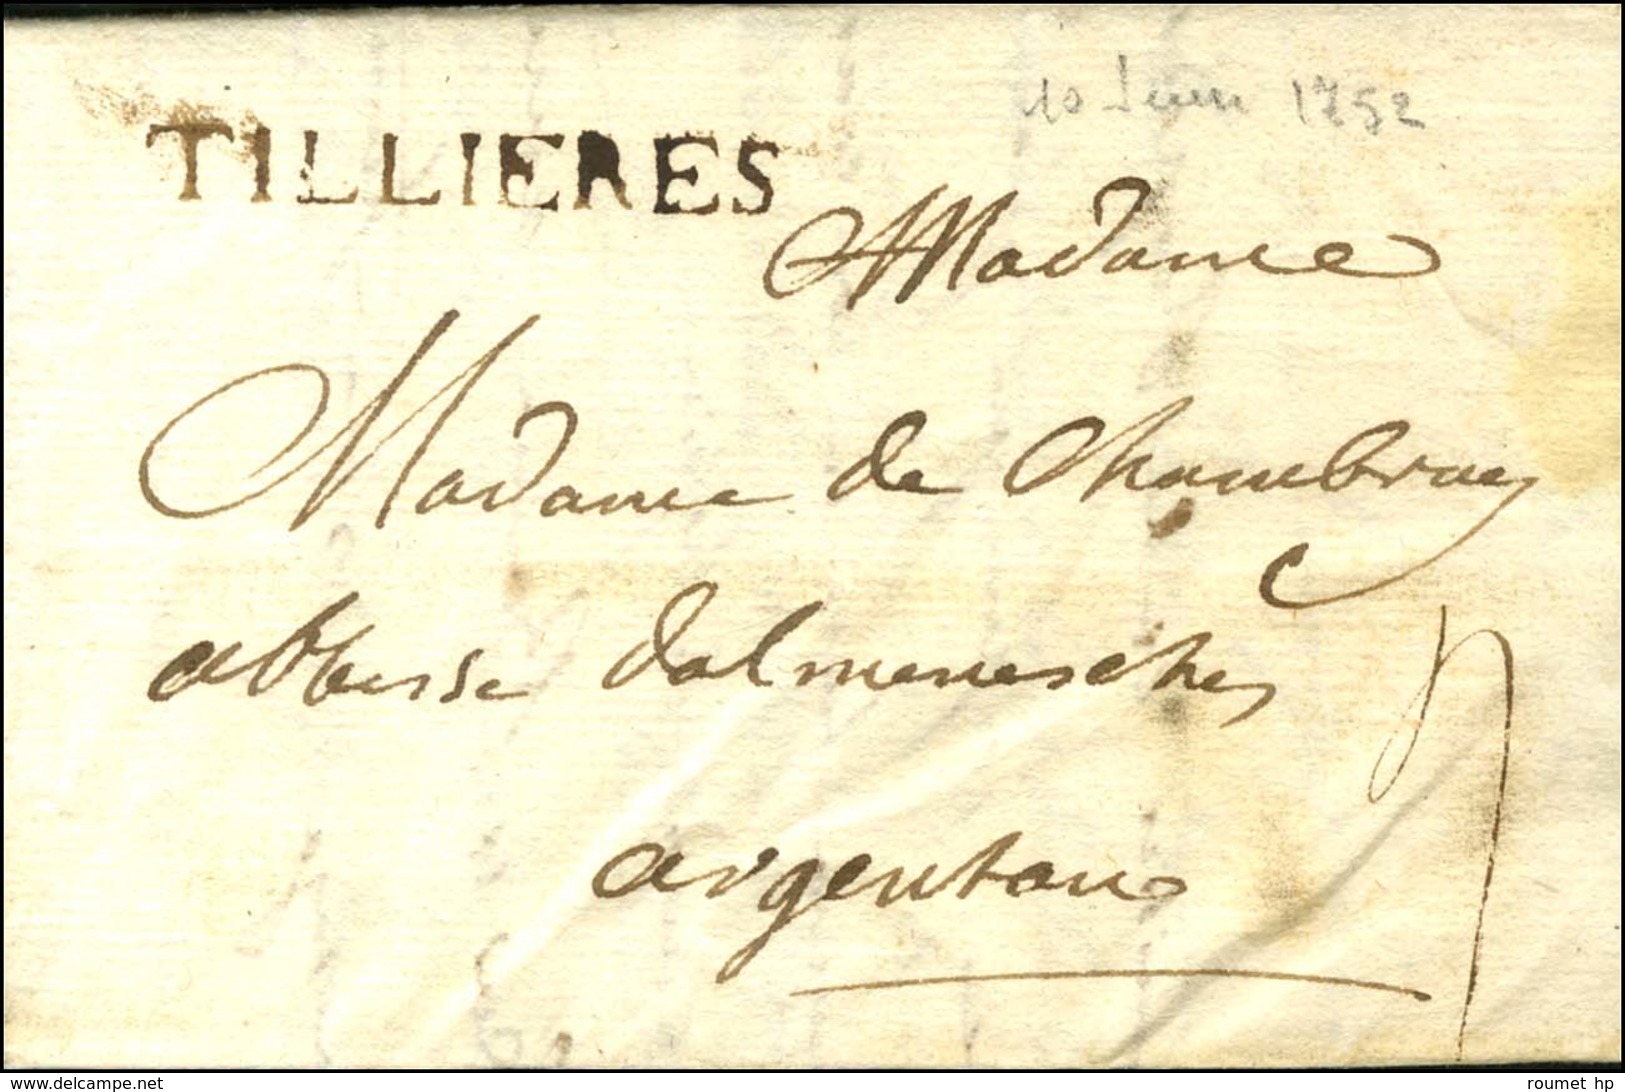 10 Juin 1752
TILLIERES
Madame
Madame de Chambray
abbesse dalmenesches
argentan
7
www.delcampe.net
roumet hp